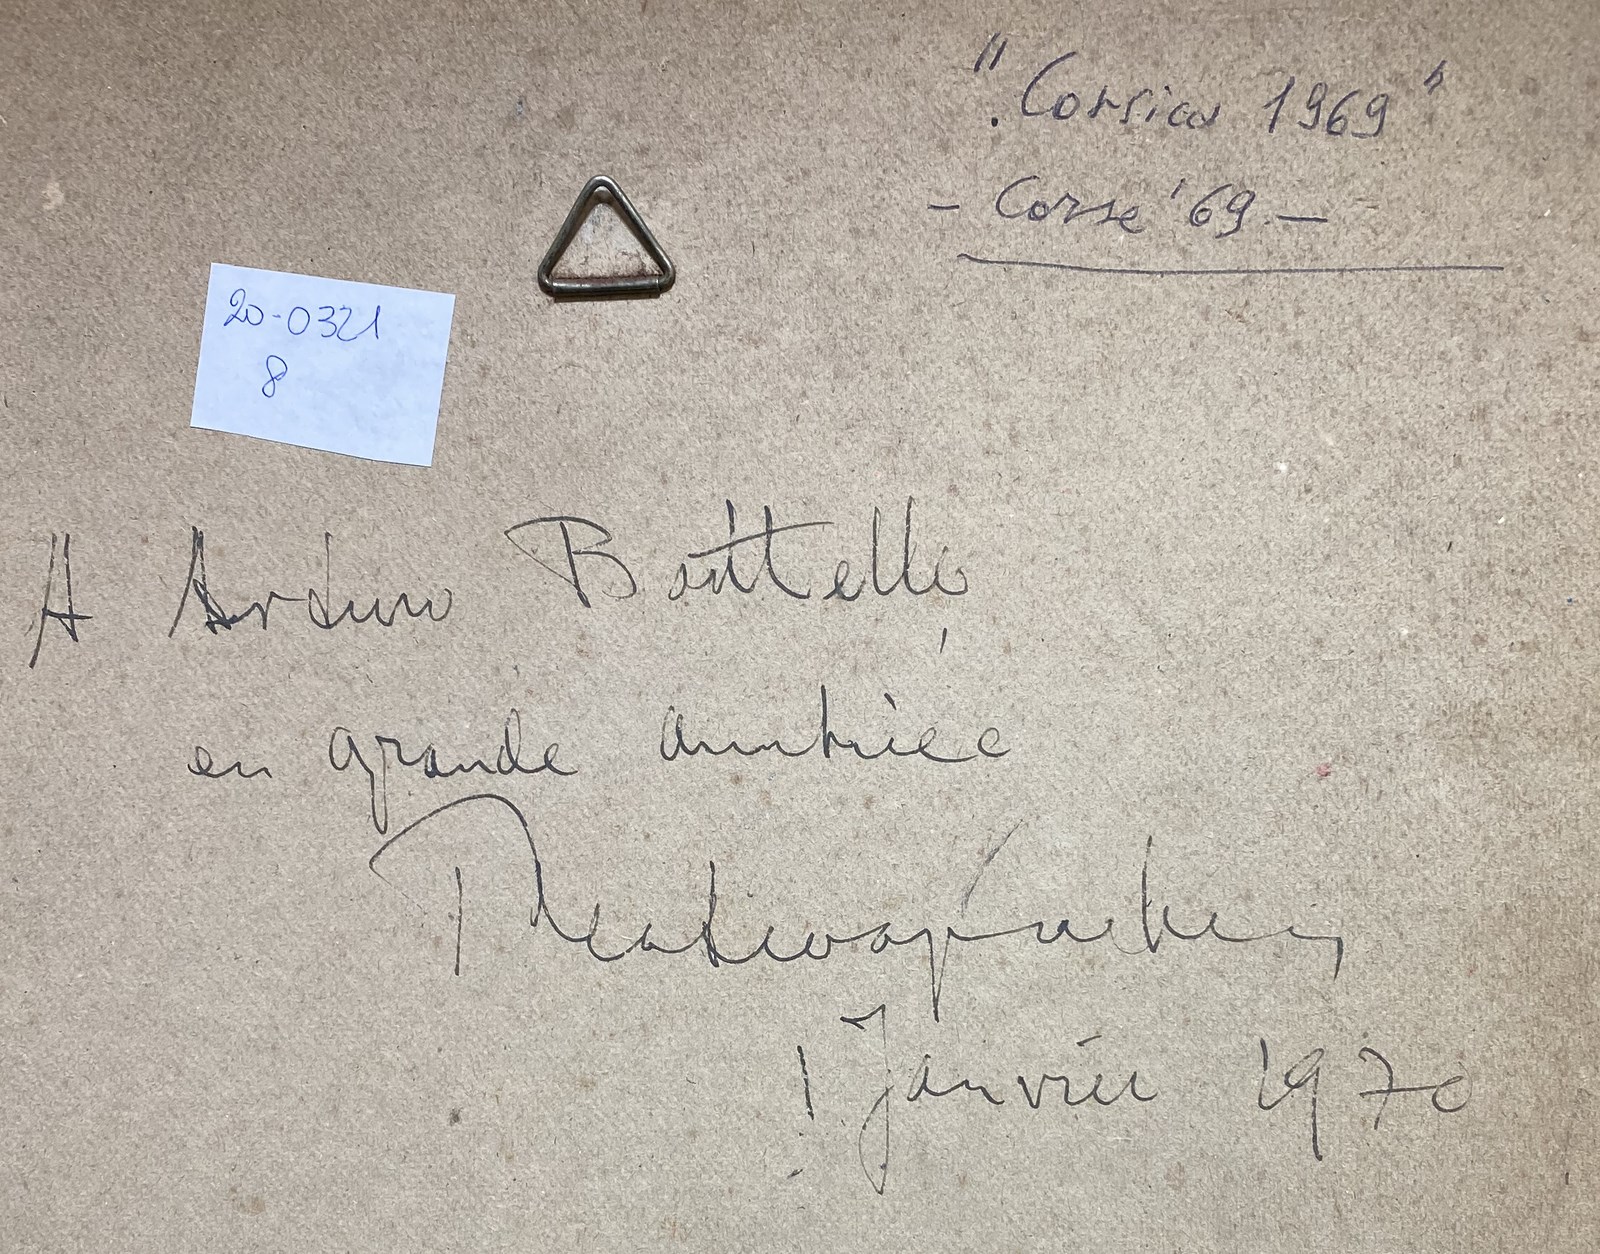 "Corsica 1969"
- Corse '69 -
20-0321
8
A Arturo Bottello
en grande
1 Janvier 1970